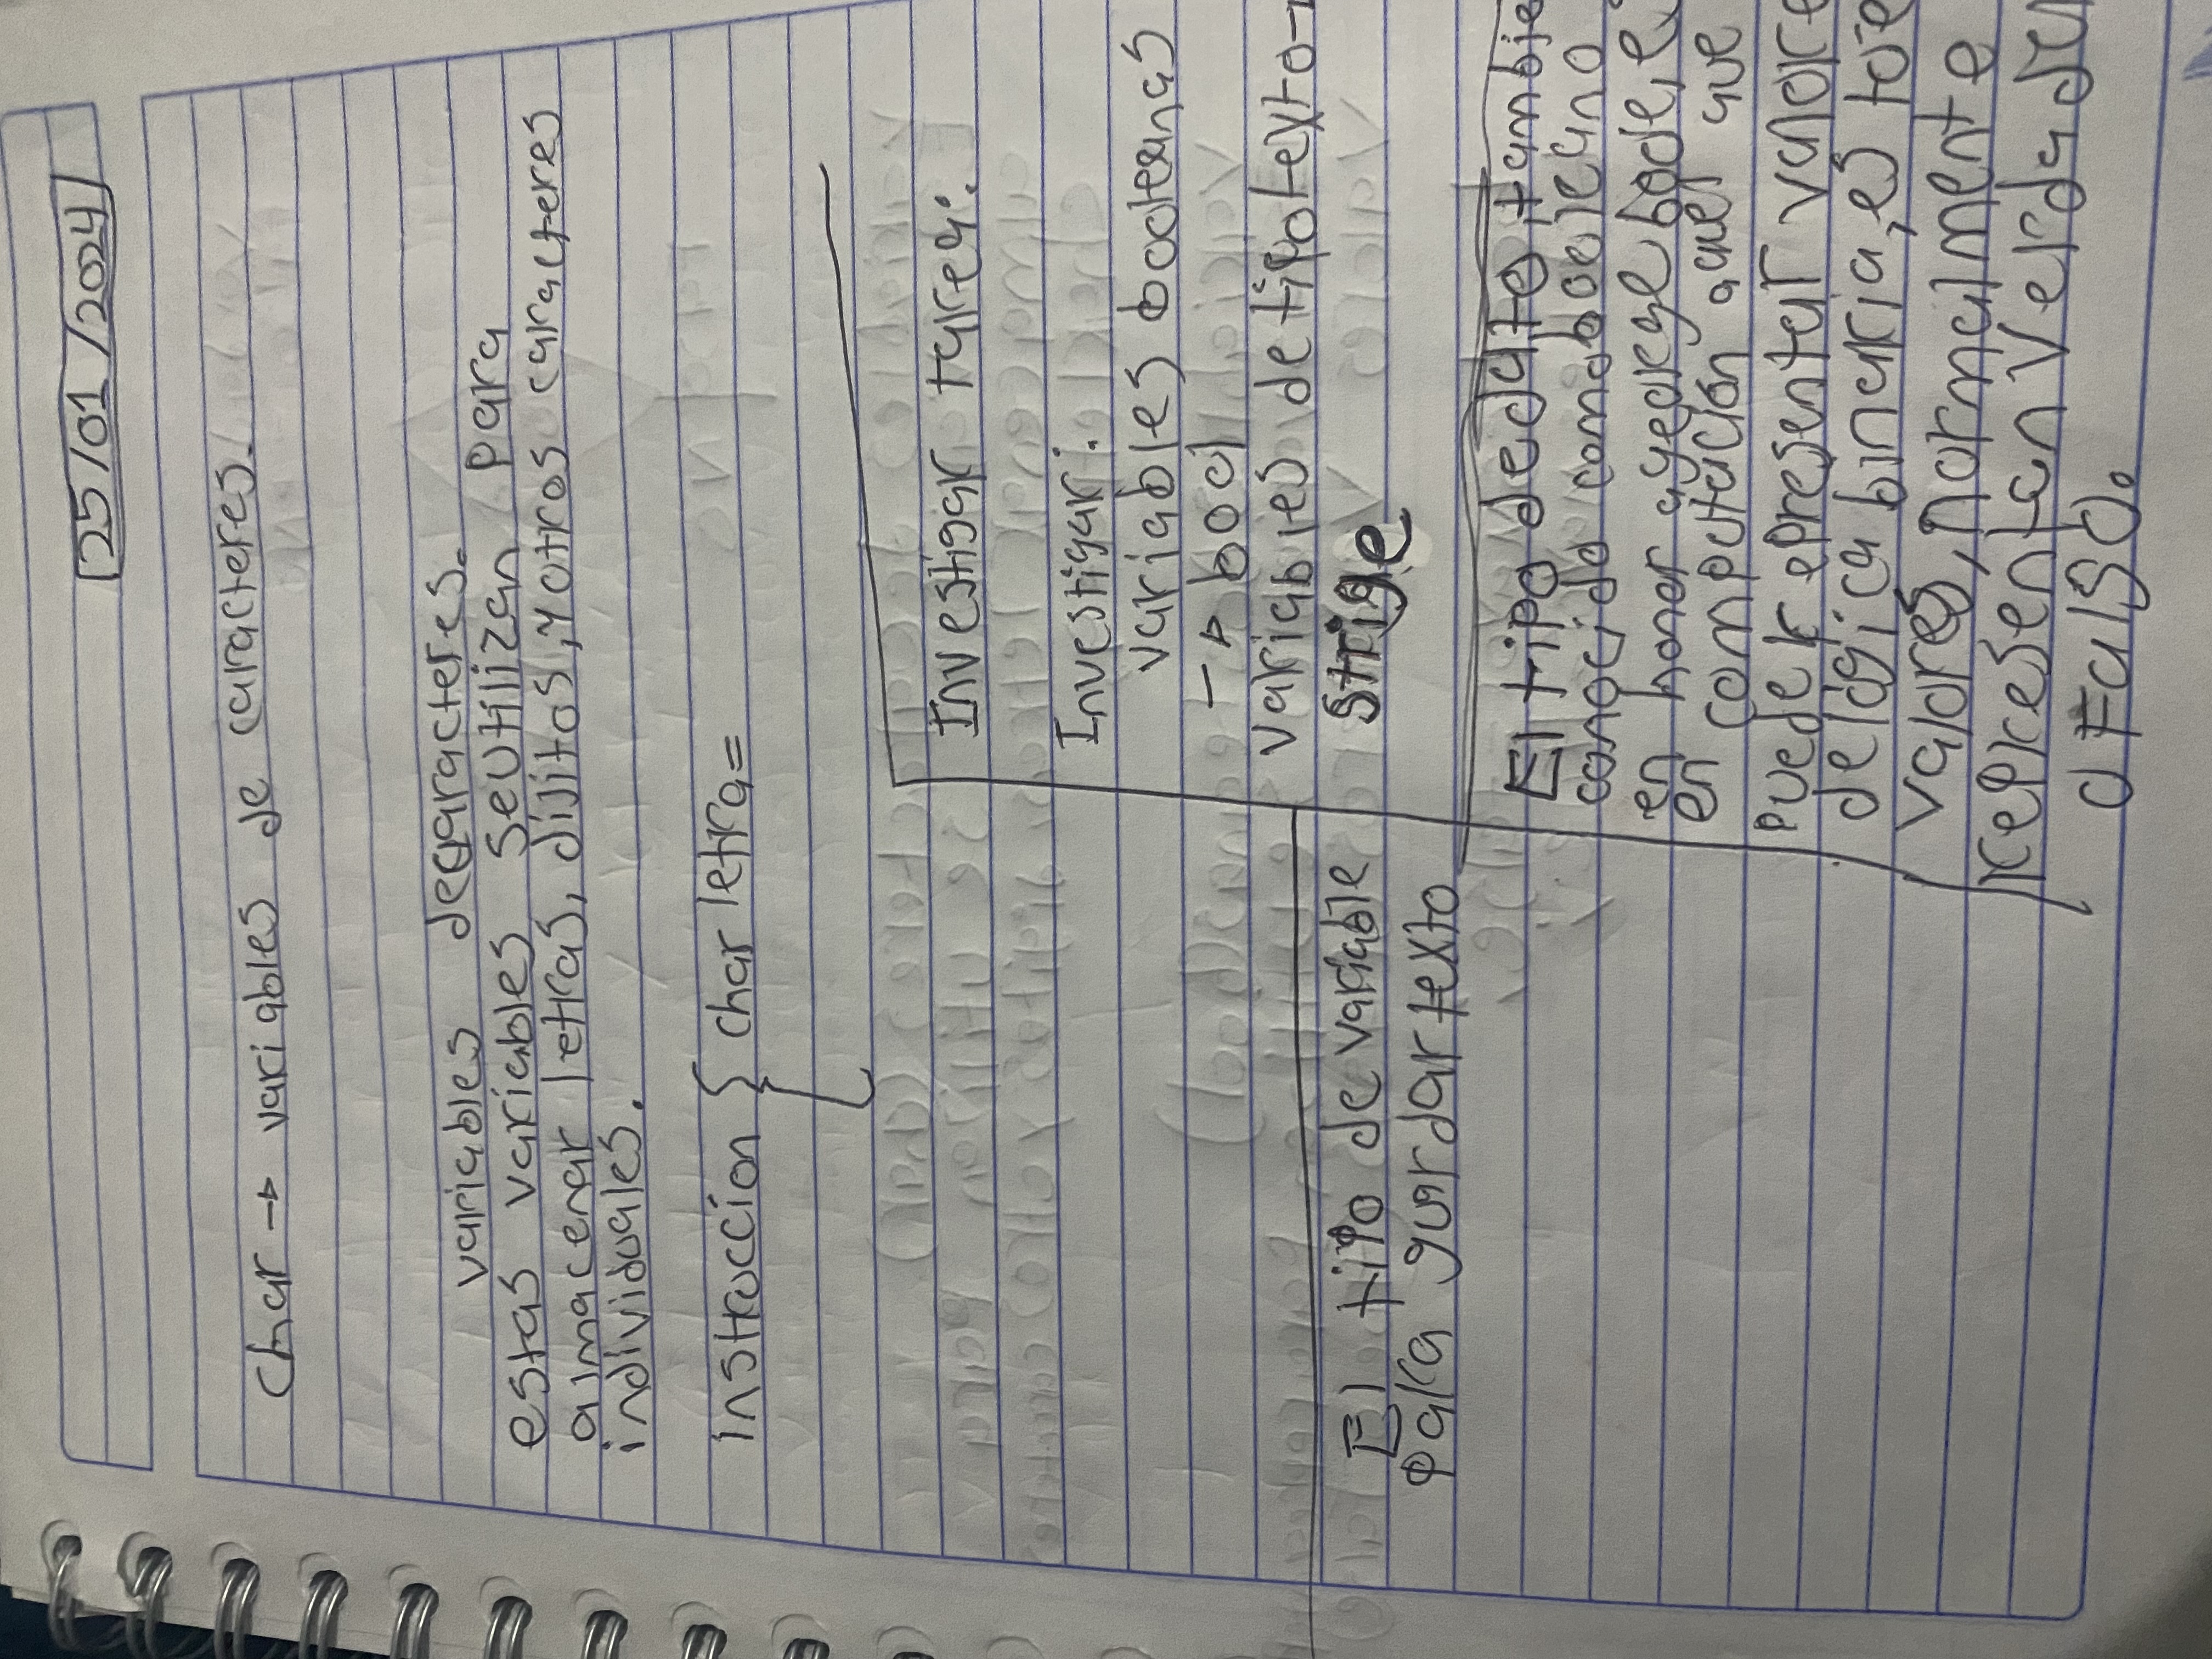 25/01/2024
Char → variables de caracteres.
variables decaracteres.
estas variables seutilizan para
almacenar letras, dijitos, y otros caracteres
individuales.
instruccíon { char letra=
Investigar tarea:
Investigar:
variables booleanas
→ bool
variables de tipo texto→
El tipo de variable
para gurdar texto
El tipo dedato,
conocido como boeleano
en honor a george boole,
en computación aquel que
puede representar valore
de lógica binaria, es
valores, normalmente
representan verdade
o falso.